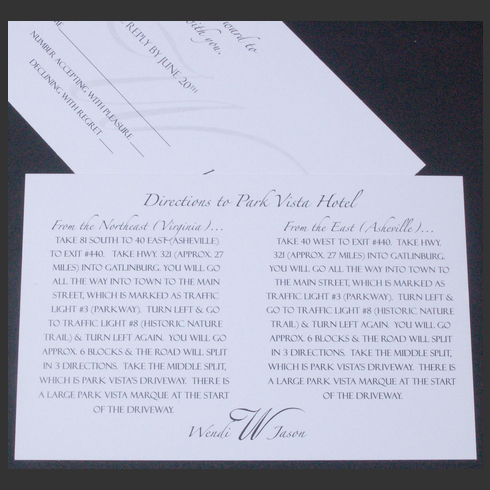 ward to
with you.
REPLY BY JUNE 20TH
NUMBER ACCEPTING WITH PLEASURE
DECLINING WITH REGRET
Directions to Park Vista Hotel
From the Northeast (Virginia)...
TAKE 81 SOUTH TO 40 EAST (ASHEVILLE)
TO EXIT #440. TAKE HWY. 321 (APPROX. 27
MILES) INTO GATLINBURG. YOU WILL GO
ALL THE WAY INTO TOWN TO THE MAIN
STREET, WHICH IS MARKED AS TRAFFIC
LIGHT #3 (PARKWAY). TURN LEFT & GO
TO TRAFFIC LIGHT #8 (HISTORIC NATURE
TRAIL) & TURN LEFT AGAIN. YOU WILL GO
APPROX. 6 BLOCKS & THE ROAD WILL SPLIT
IN 3 DIRECTIONS. TAKE THE MIDDLE SPLIT,
WHICH IS PARK VISTA'S DRIVEWAY. THERE IS
A LARGE PARK VISTA MARQUE AT THE START
OF THE DRIVEWAY.
From the East (Asheville)...
TAKE 40 WEST TO EXIT #440. TAKE HWY.
321 (APPROX. 27 MILES) INTO GATLINBURG.
YOU WILL GO ALL THE WAY INTO TOWN TO
THE MAIN STREET, WHICH IS MARKED AS
TRAFFIC LIGHT #3 (PARKWAY). TURN LEFT &
GO TO TRAFFIC LIGHT #8 (HISTORIC NATURE
TRAIL) & TURN LEFT AGAIN. YOU WILL GO
APPROX. 6 BLOCKS & THE ROAD WILL SPLIT
IN 3 DIRECTIONS. TAKE THE MIDDLE SPLIT,
WHICH IS PARK VISTA'S DRIVEWAY. THERE IS
A LARGE PARK VISTA MARQUE AT THE START
OF THE DRIVEWAY.
Wendi W Jason